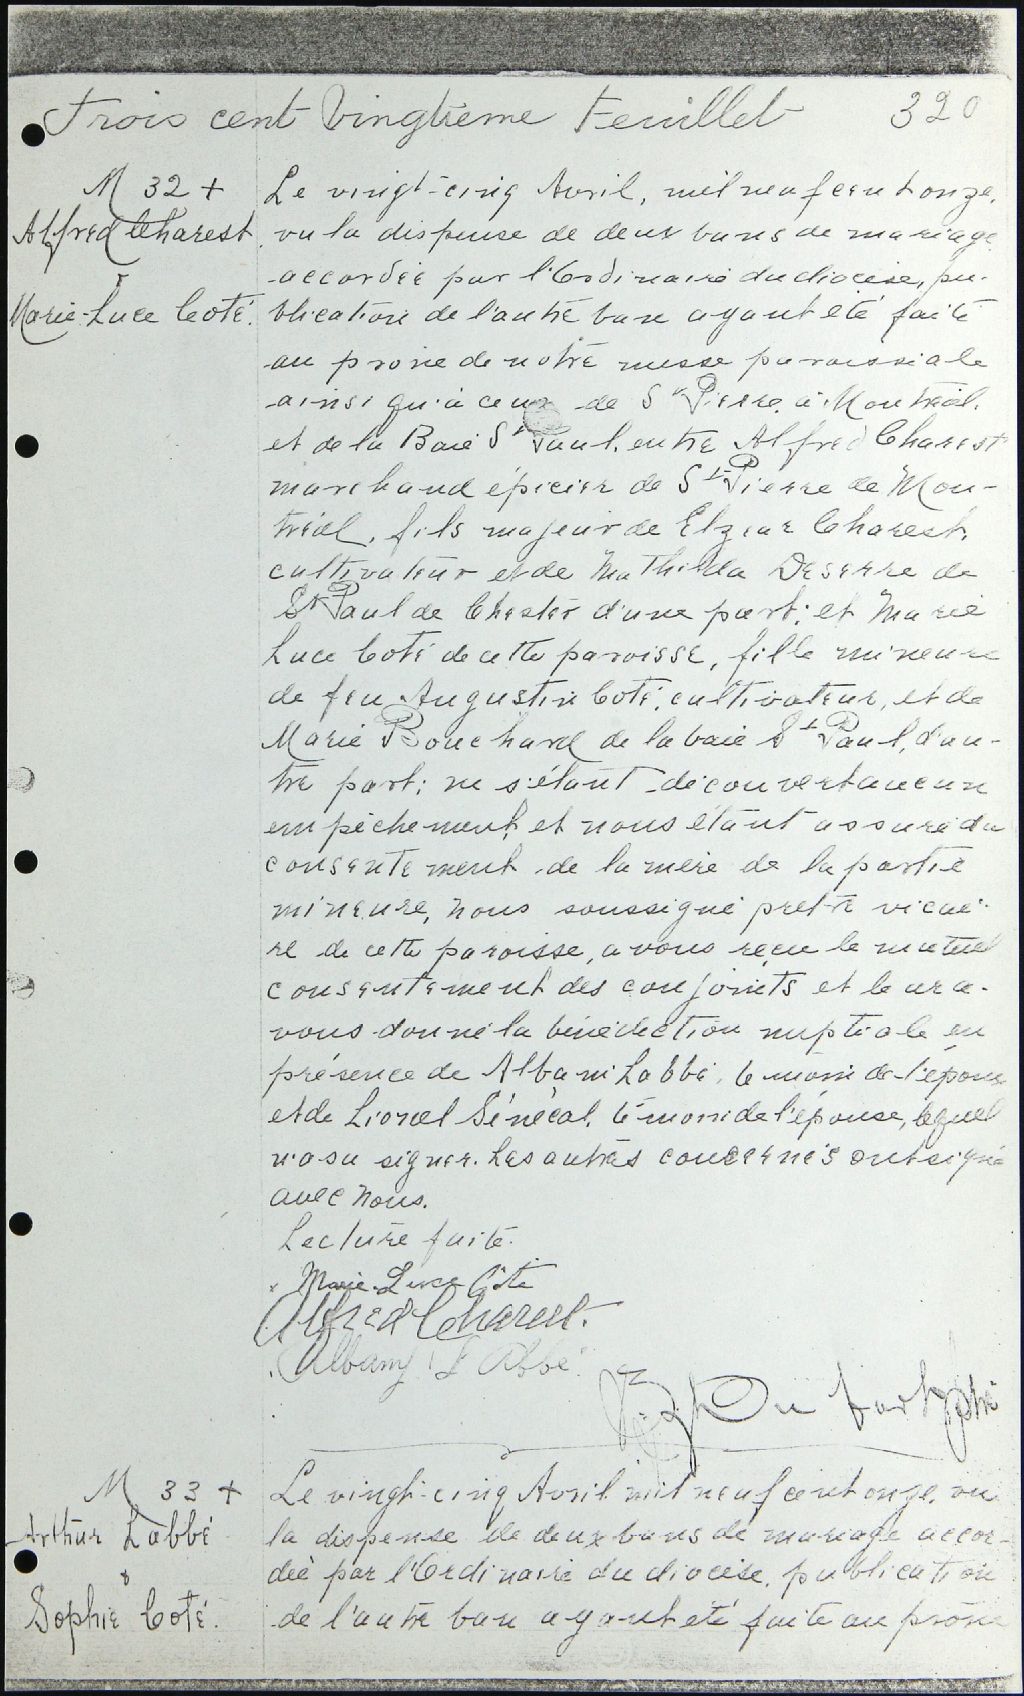 Trois cent Vingtième Feuillet 320
M 32 +
Alfred Charest
&
Marie-Luce Coté.
Le vingt-cinq Avril, mil neuf cent onze,
vu la dispense de deux bans de mariage
accordée par l'Ordinaire du diocèse, pu-
blication de l'autre ban ayant été faite
au prone de notre messe paroissiale
ainsi qu'à ceux de St Pierre à Montréal.
et de la Baie St Paul, entre Alfred Charest
marchand épicier de St Pierre de Mon-
tréal, fils majeur de Elzear Charest,
cultivateur et de Mathilda Deserre de
St Paul de Chester d'une part; et Marie
Luce Coté de cette paroisse, fille mineure
de feu Augustin Coté, cultivateur, et de
Marie Bouchard de la baie St Paul, d'au-
tre part; ne s'étant découvert aucun
empêchement, et nous étant assuré du
consentement de la mère de la partie
mineure, nous soussigné prêtre vicai-
re de cette paroisse, avons reçu le mutuel
consentement des conjoints et leur a-
vons donné la bénédiction nuptiale en
présence de Albani Labbé, témoin de l'époux
et de Lionel Sénécal, témoin de l'épouse, lequel
n'a su signer. Les autres concernés ont signé
avec nous.
Lecture faite.
Marie-Luce Côté
Alfred Charest.
Albany L'Abbé
ptre
M 33 +
Arthur Labbé
&
Sophie Coté.
Le vingt-cinq Avril mil neuf cent onze, vu
la dispense de deux bans de mariage accor-
dée par l'Ordinaire du diocèse, publication
de l'autre ban ayant été faite au prône